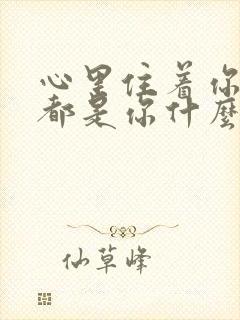 心里住着你
都是你什麼
仙草峰